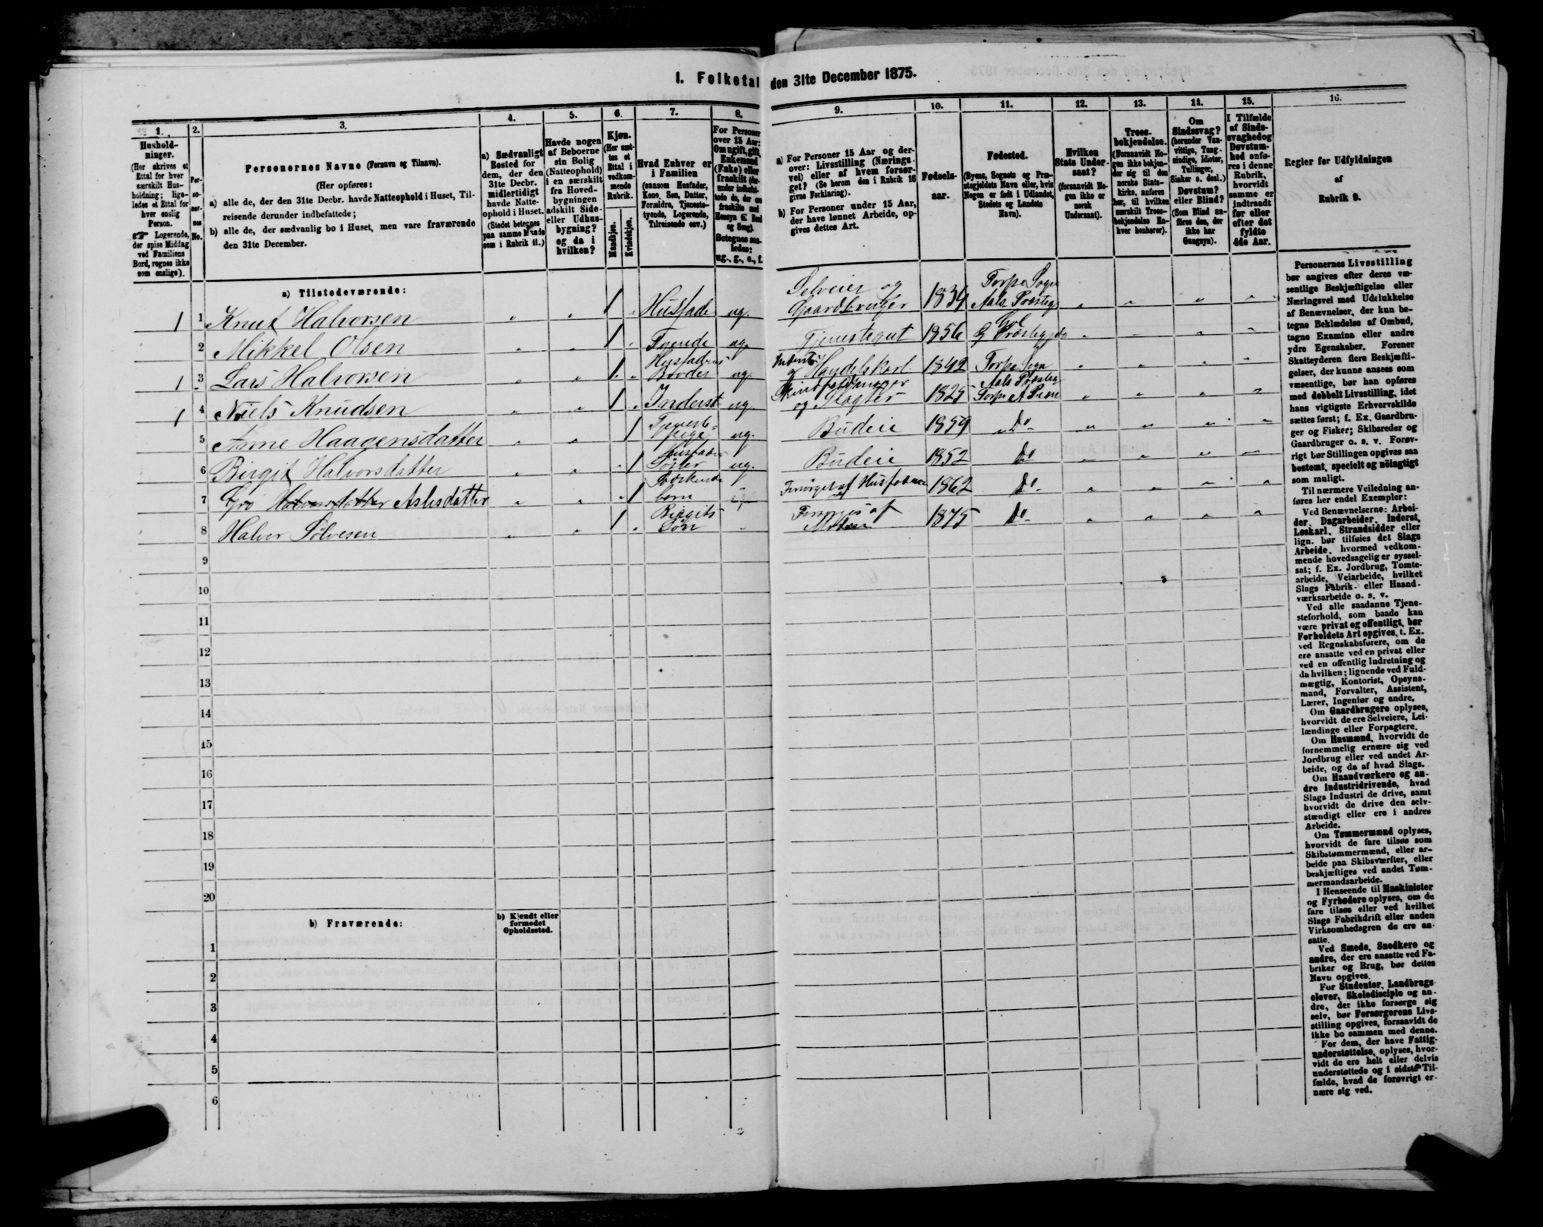 I. Folketal den 31te December 1875.
1.
Hushold-
ninger.
(Her skrives et
Ettal for hver
særskilt Hus-
holdning; lige-
ledes et Ettal for
hver enslig
Person.
Logerende,
der spise Middag
ved Familiens
Bord, regnes ikke
som enslige).
2.
Per-
so-
ner-
nes
No.
3.
Personernes Navne (Fornavn og Tilnavn).
(Her opføres:
a) alle de, der den 31te Decbr. havde Natteophold i Huset, Til-
reisende derunder indbefattede;
b) alle de, der sædvanlig bo i Huset, men vare fraværende
den 31te December.
4.
a) Sædvanligt
Bosted for
dem, der den
31te Decbr.
midlertidigt
havde Natte-
ophold i Huset.
(Stedet betegnes
paa samme Maade
som i Rubrik 11.)
5.
Havde nogen
af Beboerne
sin Bolig
(Natteophold)
i en særskilt
fra Hoved-
bygningen
adskilt Side-
eller Udhus-
bygning?
og da i
hvilken?
6.
Kjøn.
(Her sæt-
tes et
Ettal i
vedkom-
mende
Rubrik.
Mandkjøn.
Kvindekjøn.
7.
Hvad Enhver er
i Familien
(saasom Husfader,
Kone, Søn, Datter,
Forældre, Tjeneste-
tyende, Logerende,
Tilreisende osv.)
8.
For Personer
over 15 Aar:
Om ugift, gift,
Enkemand
(Enke) eller
fraskilt
Betegnes saa-
ledes:
ug., g., e., f.
9.
a) For Personer 15 Aar og der-
over: Livsstilling (Nærings-
vei) eller af hvem forsør-
get? (Se herom den i Rubrik 16
givne Forklaring).
b) For Personer under 15 Aar,
der have lønnet Arbeide, op-
gives dettes Art.
10.
Fødsels-
aar.
11.
Fødested.
(Byens, Sognets og Præ-
stegjeldets Navn eller, hvis
Nogen er født i Udlandet,
Stedets og Landets
Navn).
12.
Hvilken
Stats Under-
saat?
(forsaavidt No-
gen ikke er
norsk
Undersaat).
13.
Troes-
bekjendelse.
(Forsaavidt No-
gen ikke bekjen-
der sig til den
norske Stats-
kirke, anføres
her, til hvilken
særskilt Troes-
bekjendelse En-
hver henhører).
14.
Om
Sindssvag?
(herunder Van-
vittige, Tung-
sindige, Idioter,
Tullinger,
Sinker o. desl.)
Døvstum?
eller Blind?
(Som Blind an-
føres den, der
ikke har
Gangsyn).
15.
I Tilfælde
af Sinds-
svaghed og
Døvstum-
hed anfø-
res i denne
Rubrik,
hvorvidt
samme er
indtraadt
før eller
efter det
fyldte
4de Aar.
16.
Regler for Udfyldningen
af
Rubrik 9.
a) Tilstedeværende:
1 1 Knut Halvorsen 1 Husfader ug. Selveier og Gaardbruger 1834 Torpe Sogn Aals Præsteg
2 Mikkel Olsen 1 Tyende ug. Tjenestegut 1856 Gol Præstegjeld
1 3 Lars Halvorsen 1 Husfaderens Broder ug. Handelskarl 1842 Torpe Sogn Aals Præsteg
1 4 Niels Knudsen 1 Inderst ug. og Slagter 1825 Torpe
5 Anne Haagensdatter 1 Tjenestepige ug. Budeie 1859 do
6 Birgit Halvorsdatter 1 Husfaders Søster ug. Budeie 1852 do
7 Gro Halvorsdatter Aslesdatter 1 barn Forsørget af Husfaderen 1862 do
8 Halvor Sølvesen 1 Birgits Søn Forsørges af Moderen 1875 do
9
10
11
12
13
14
15
16
17
18
19
20
b) Fraværende:
b) Kjendt eller
formodet
Opholdssted.
1
2
3
4
5
6
Personernes Livsstilling
bør angives efter deres væ-
sentlige Beskjæftigelse eller
Næringsvei med Udelukkelse
af Benævnelser, der kun be-
tegne Beklædelse af Ombud,
tagne Examina eller andre
ydre Egenskaber. Forener
Skatteyderen flere Beskjæfti-
gelser, der kunne ansees som
væsentlige, bør han opføres
med dobbelt Livsstilling, idet
hans vigtigste Erhvervskilde
sættes først; f. Ex. Gaardbru-
ger og Fisker; Skibsreder og
Gaardbruger o. s. v. Forøv-
rigt bør Stillingen opgives saa
bestemt, specielt og nøiagtigt
som muligt.
Til nærmere Veiledning an-
føres her endel Exempler:
Ved Benævnelserne: Arbei-
der, Dagarbeider, Inderst,
Løskarl, Strandsidder eller
lign. bør tilføies det Slags
Arbeide, hvormed vedkom-
mende hovedsagelig er syssel-
sat; f. Ex. Jordbrug, Tomte-
arbeide, Veiarbeide, hvilket
Slags Fabrik- eller Haand-
værksarbeide o. s. v.
Ved alle saadanne Tjene-
steforhold, som baade kan
være privat og offentligt, bør
Forholdets Art opgives, t. Ex.
ved Regnskabsførere, om de
ere ansatte ved en privat eller
ved en offentlig Indretning og
da hvilken; lignende ved Fuld-
mægtig, Kontorist, Opsyns-
mand, Forvalter, Assistent,
Lærer, Ingeniør og andre.
Om Gaardbrugere oplyses,
hvorvidt de ere Selveiere, Lei-
lændinge eller Forpagtere.
Om Husmænd, hvorvidt de
fornemmelig ernære sig ved
Jordbrug eller ved andet Ar-
beide, og da af hvad Slags.
Om Haandværkere og an-
dre Industridrivende, hvad
Slags Industri de drive, samt
hvorvidt de drive den selv-
stændigt eller ere i andres
Arbeide.
Om Tømmermænd oplyses,
hvorvidt de fare tilsøs som
Skibstømmermænd, eller ar-
beide paa Skibsværfter, eller
beskjæftiges ved andet Tøm-
mermandsarbeide.
I Henseende til Maskinister
og Fyrbødere oplyses, om de
fare tilsøs eller ved hvilket
Slags Fabrikdrift eller anden
Virksomhedsgren de ere an-
satte.
Ved Smede, Snedkere og
andre, der ere ansatte ved Fa-
briker og Brug, bør dettes
Navn opgives.
For Studenter, Landbrugs-
elever, Skoledisciple og an-
dre, der ikke forsørge sig
selv, bør Forsørgerens Livs-
stilling opgives, forsaavidt de
ikke bo sammen med denne.
For dem, der have Fattig-
understøttelse, oplyses, hvor-
vidt de ere helt eller delvis
understøttede og i sidste Til-
fælde, hvad de forøvrigt er-
nære sig ved.